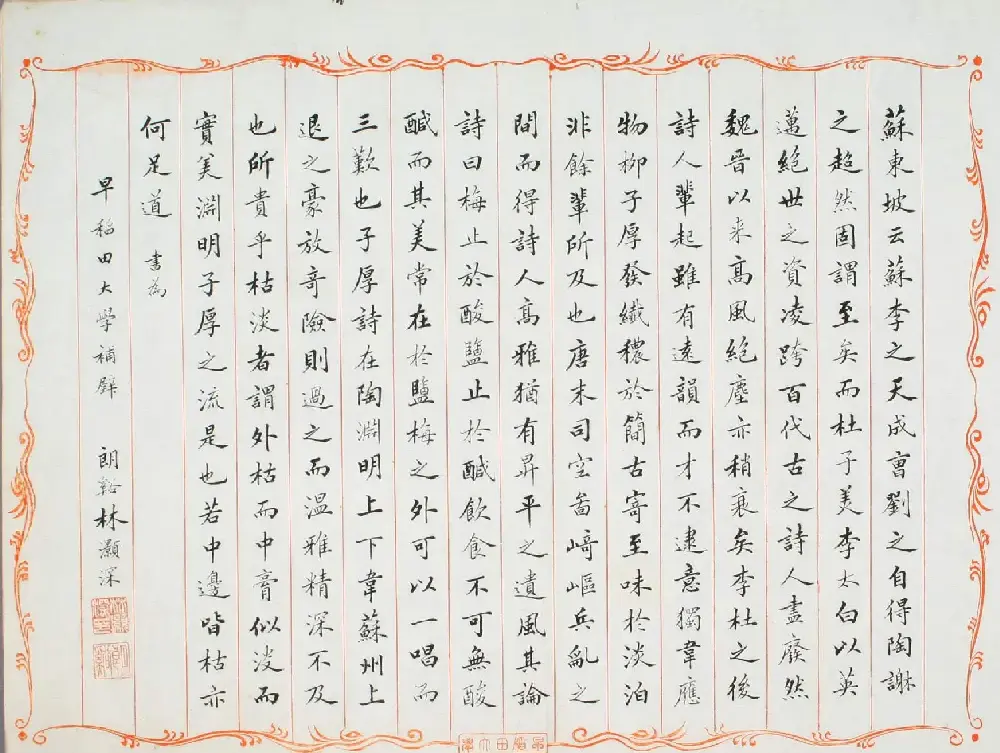 蘇東坡云蘇李之天成曹劉之自得陶謝
之超然固謂至矣而杜子美李太白以英
邁絕世之資凌跨百代古之詩人盡廢然
魏晉以来高風絕塵亦稍衰矣李杜之後
詩人輩起雖有遠韻而才不逮意獨韋應
物柳子厚發纖穠於簡古寄至味於淡泊
非餘輩所及也唐末司空啚崎嶇兵亂之
間而得詩人高雅猶有昇平之遺風其論
詩曰梅止於酸鹽止於醎飲食不可無酸
醎而其美常在於鹽梅之外可以一唱而
三歎也子厚詩在陶淵明上下韋蘇州上
退之豪放奇險則過之而溫雅精深不及
也所貴乎枯淡者謂外枯而中膏似淡而
實美淵明子厚之流是也若中邊皆枯亦
何足道 書為
早稻田大学補壁 朗谿林灝深